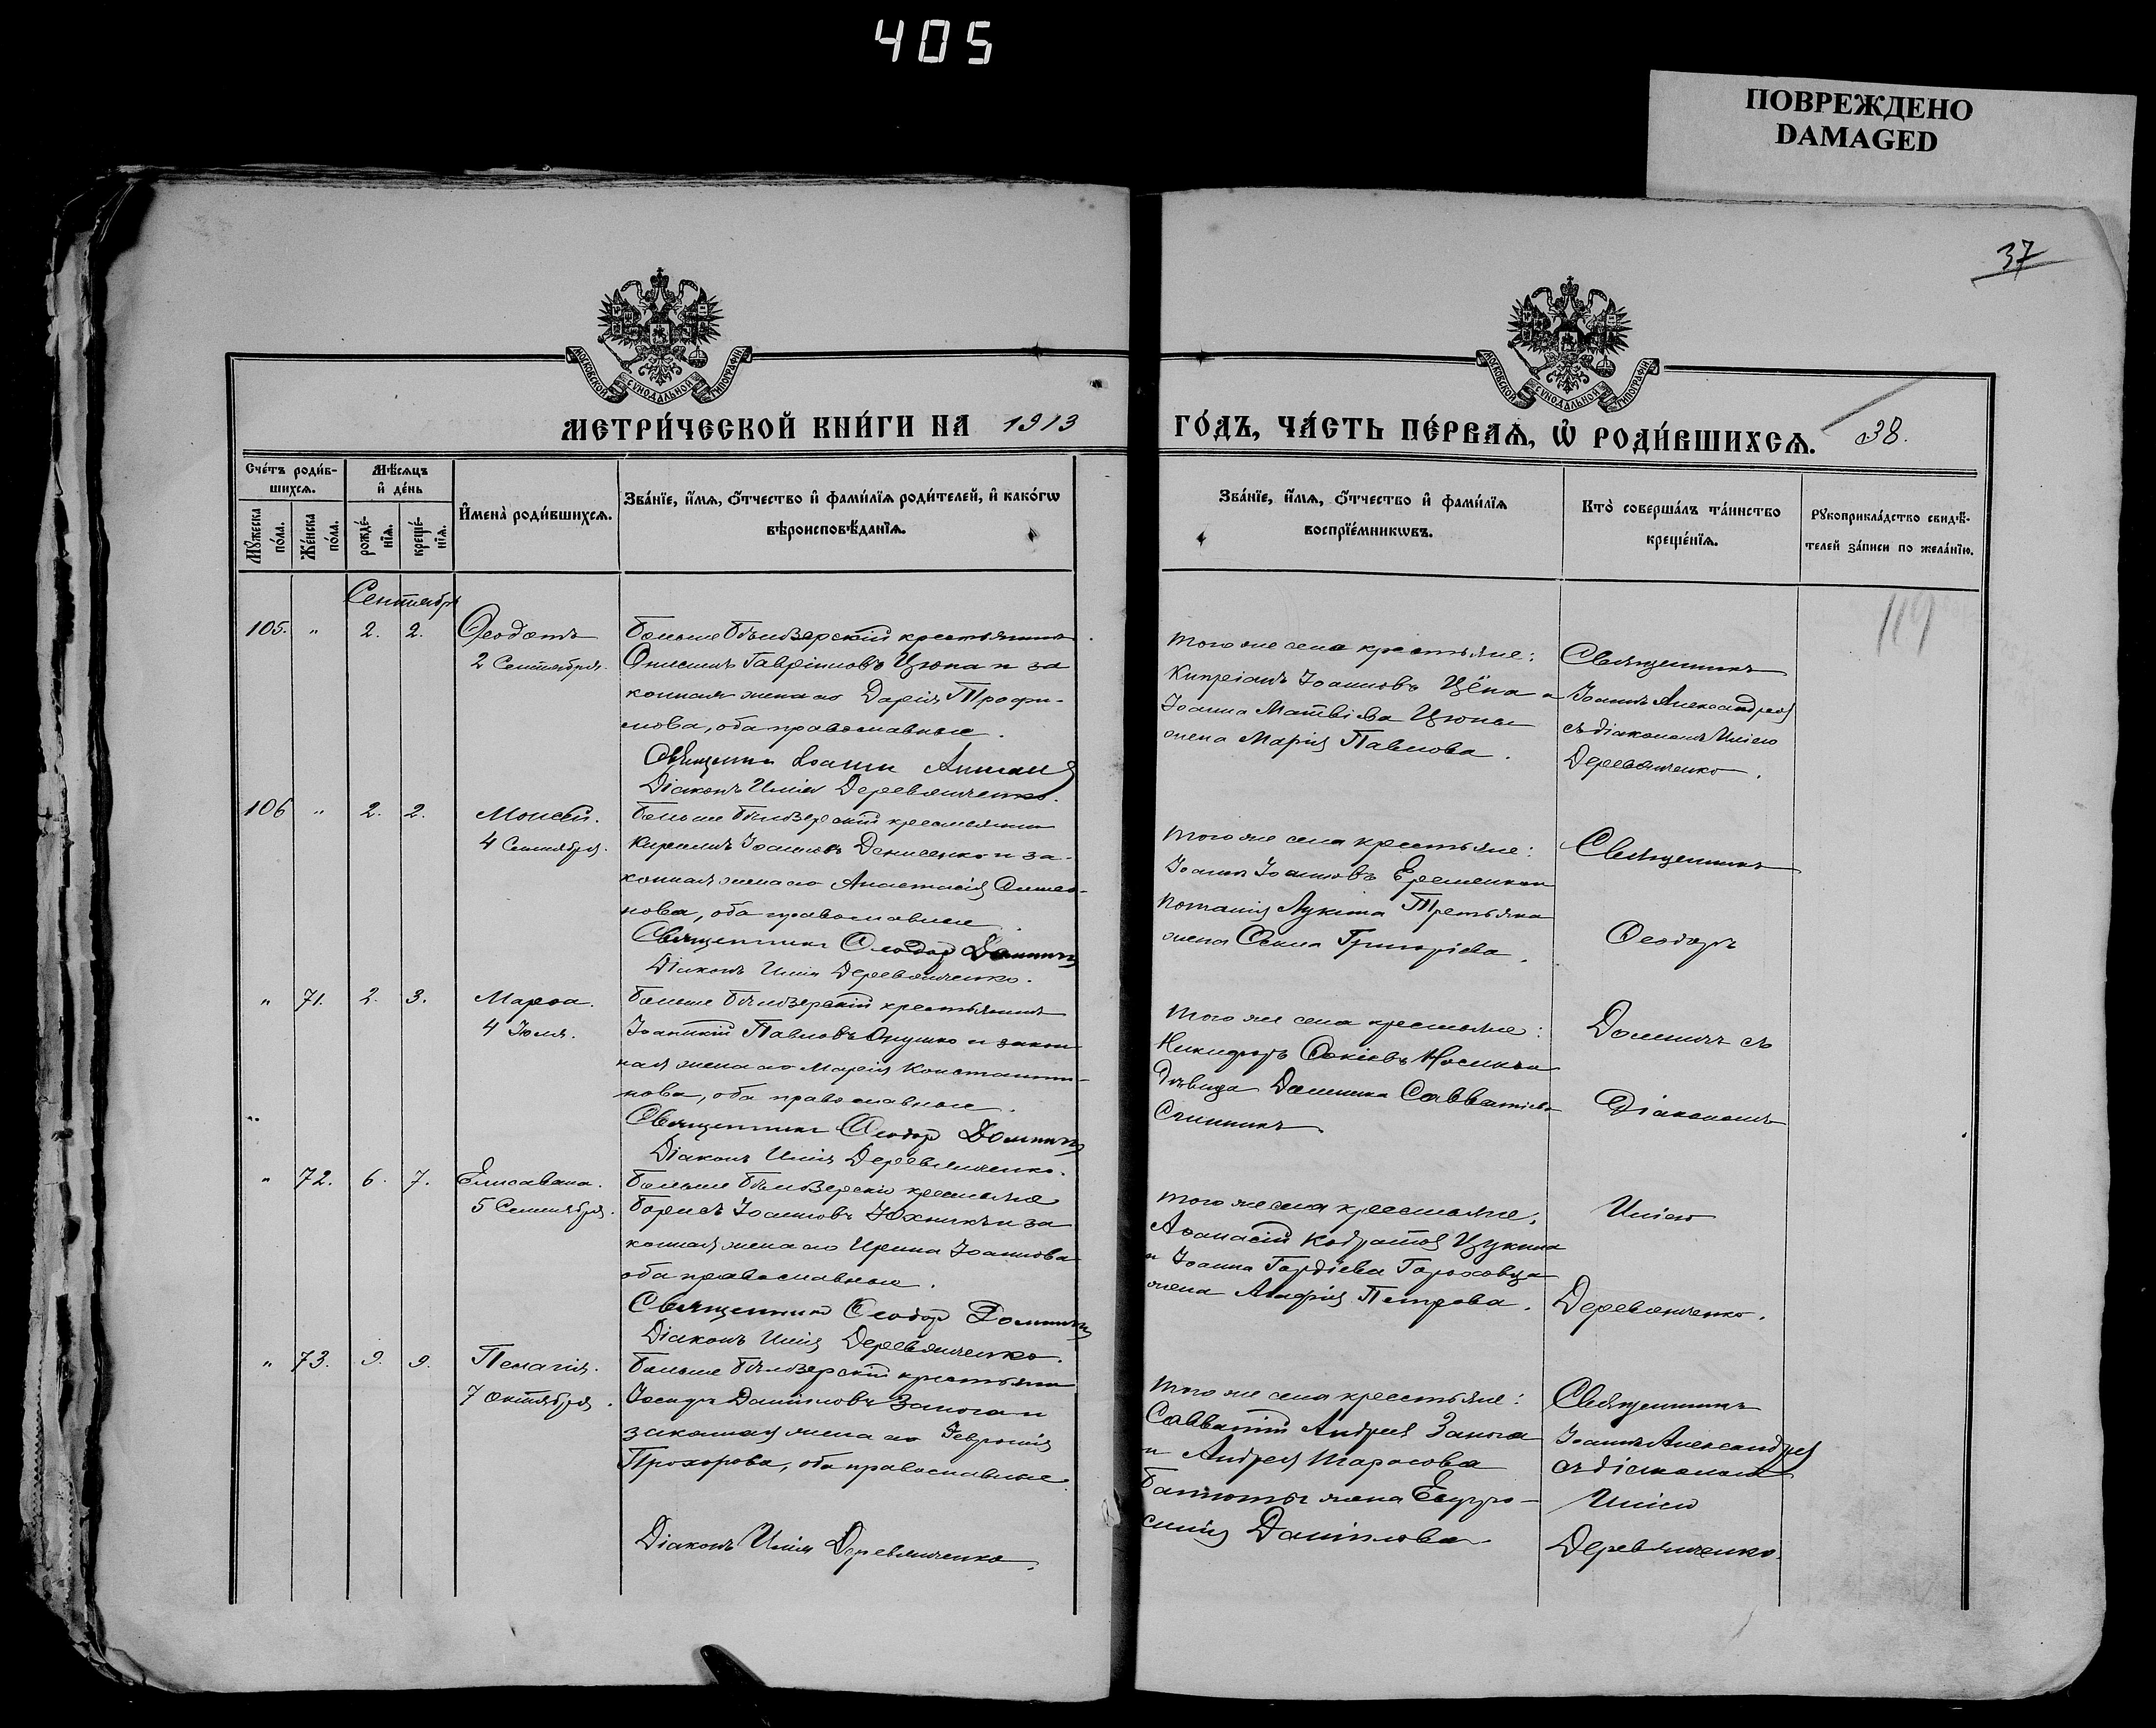 405
ПОВРЕЖДЕНО
DAMAGED
37
МОСКОВСКОЙ СУНОДАЛЬНОЙ ТИПОГРАФІИ
МОСКОВСКОЙ СУНОДАЛЬНОЙ ТИПОГРАФІИ
МЕТРИ́ЧЕСКОЙ КНИ́ГИ НА 1913
ГО́ДЪ, ЧА́СТЬ ПЕ́РВАЯ, Ѡ РОДИ́ВШИХСЯ. 38.
Сче́тъ роди́в-
шихся.
Мѣ́сяцъ
и де́нь
Му́жеска
по́ла.
Же́нска
по́ла.
рожде́-
нїя.
креще́-
нїя.
Имена̀ роди́вшихся.
Зва́нїе, и́мя, о́тчество и фами́лїя роди́телей, и како́гѡ
вѣроисповѣ́данїя.
Зва́нїе, и́мя, о́тчество и фами́лїя
воспрїе́мникѡвъ.
Кто̀ соверша́лъ та́инство
креще́нїя.
Рукоприкла́дство свидѣ́-
телей за́писи по жела́нїю.
Сентябрь
119
105. " 2. 2. Ѳеодотъ
2 Сентября.
Больше Бѣлозерскій крестьянинъ
Онисимъ Гавріиловъ Цюпа и за
конная жена его Дарія Трофи-
мова, оба православные.
Священникъ Іоаннъ
Діаконъ Илія Деревянченко.
того же села крестьяне:
Кипріанъ Іоанновъ Цёпа и
Іоанна Матвіева Цюпы
жена Марія Павлова.
Священникъ
Іоаннъ Александровъ
съ діакономъ Иліею
Деревянченко.
106 " 2. 2. Моисей.
4 Сентября.
Больше Бѣлозерскій крестьянинъ
Кириллъ Іоанновъ Денисенко и за-
конная жена его Анастасія Симео-
нова, оба православные.
Священникъ Ѳеодоръ
Діаконъ Илія Деревянченко.
того же села крестьяне:
Іоаннъ Іоанновъ Еременко и
Потапія Лукина Третьяка
жена Григоріева.
" 71. 2. 3. Марѳа.
4 Іюля.
Больше Бѣлозерскій крестьянинъ
Іоанникій Павловъ и закон
ная жена его Марія Константи-
нова, оба православные.
Священникъ Ѳеодоръ
Діаконъ Илія Деревянченко.
того же села крестьяне:
Никифоръ Носикъ и
дѣвица Домника Савватіева
Священникъ
Ѳеодоръ
съ
Діакономъ
Иліею
Деревянченко.
" 72. 6. 7. Елисавета.
5 Сентября.
Больше Бѣлозерскіе крестьяне
Борисъ Іоанновъ Юхникъ и за
конная жена его Ирина Іоаннова
оба православные.
Священникъ Ѳеодоръ
Діаконъ Илія Деревянченко.
того же села крестьяне:
Аѳанасій Кодратовъ
и Іоанна Гордіева Гороховца
жена Агафія Петрова.
" 73. 9. 9. Пелагія.
7 Октября.
Больше Бѣлозерскій крестьянинъ
Іосифъ Даніиловъ Залога и
законная жена его Февронія
Прохорова, оба православные.
Діаконъ Илія Деревянченко.
того же села крестьяне:
Савватій Андреевъ Залога
и Андрея Тарасова
жена Евфро-
синія Даніилова
Священникъ
Іоаннъ Александровъ
съ діакономъ
Иліею
Деревянченко.